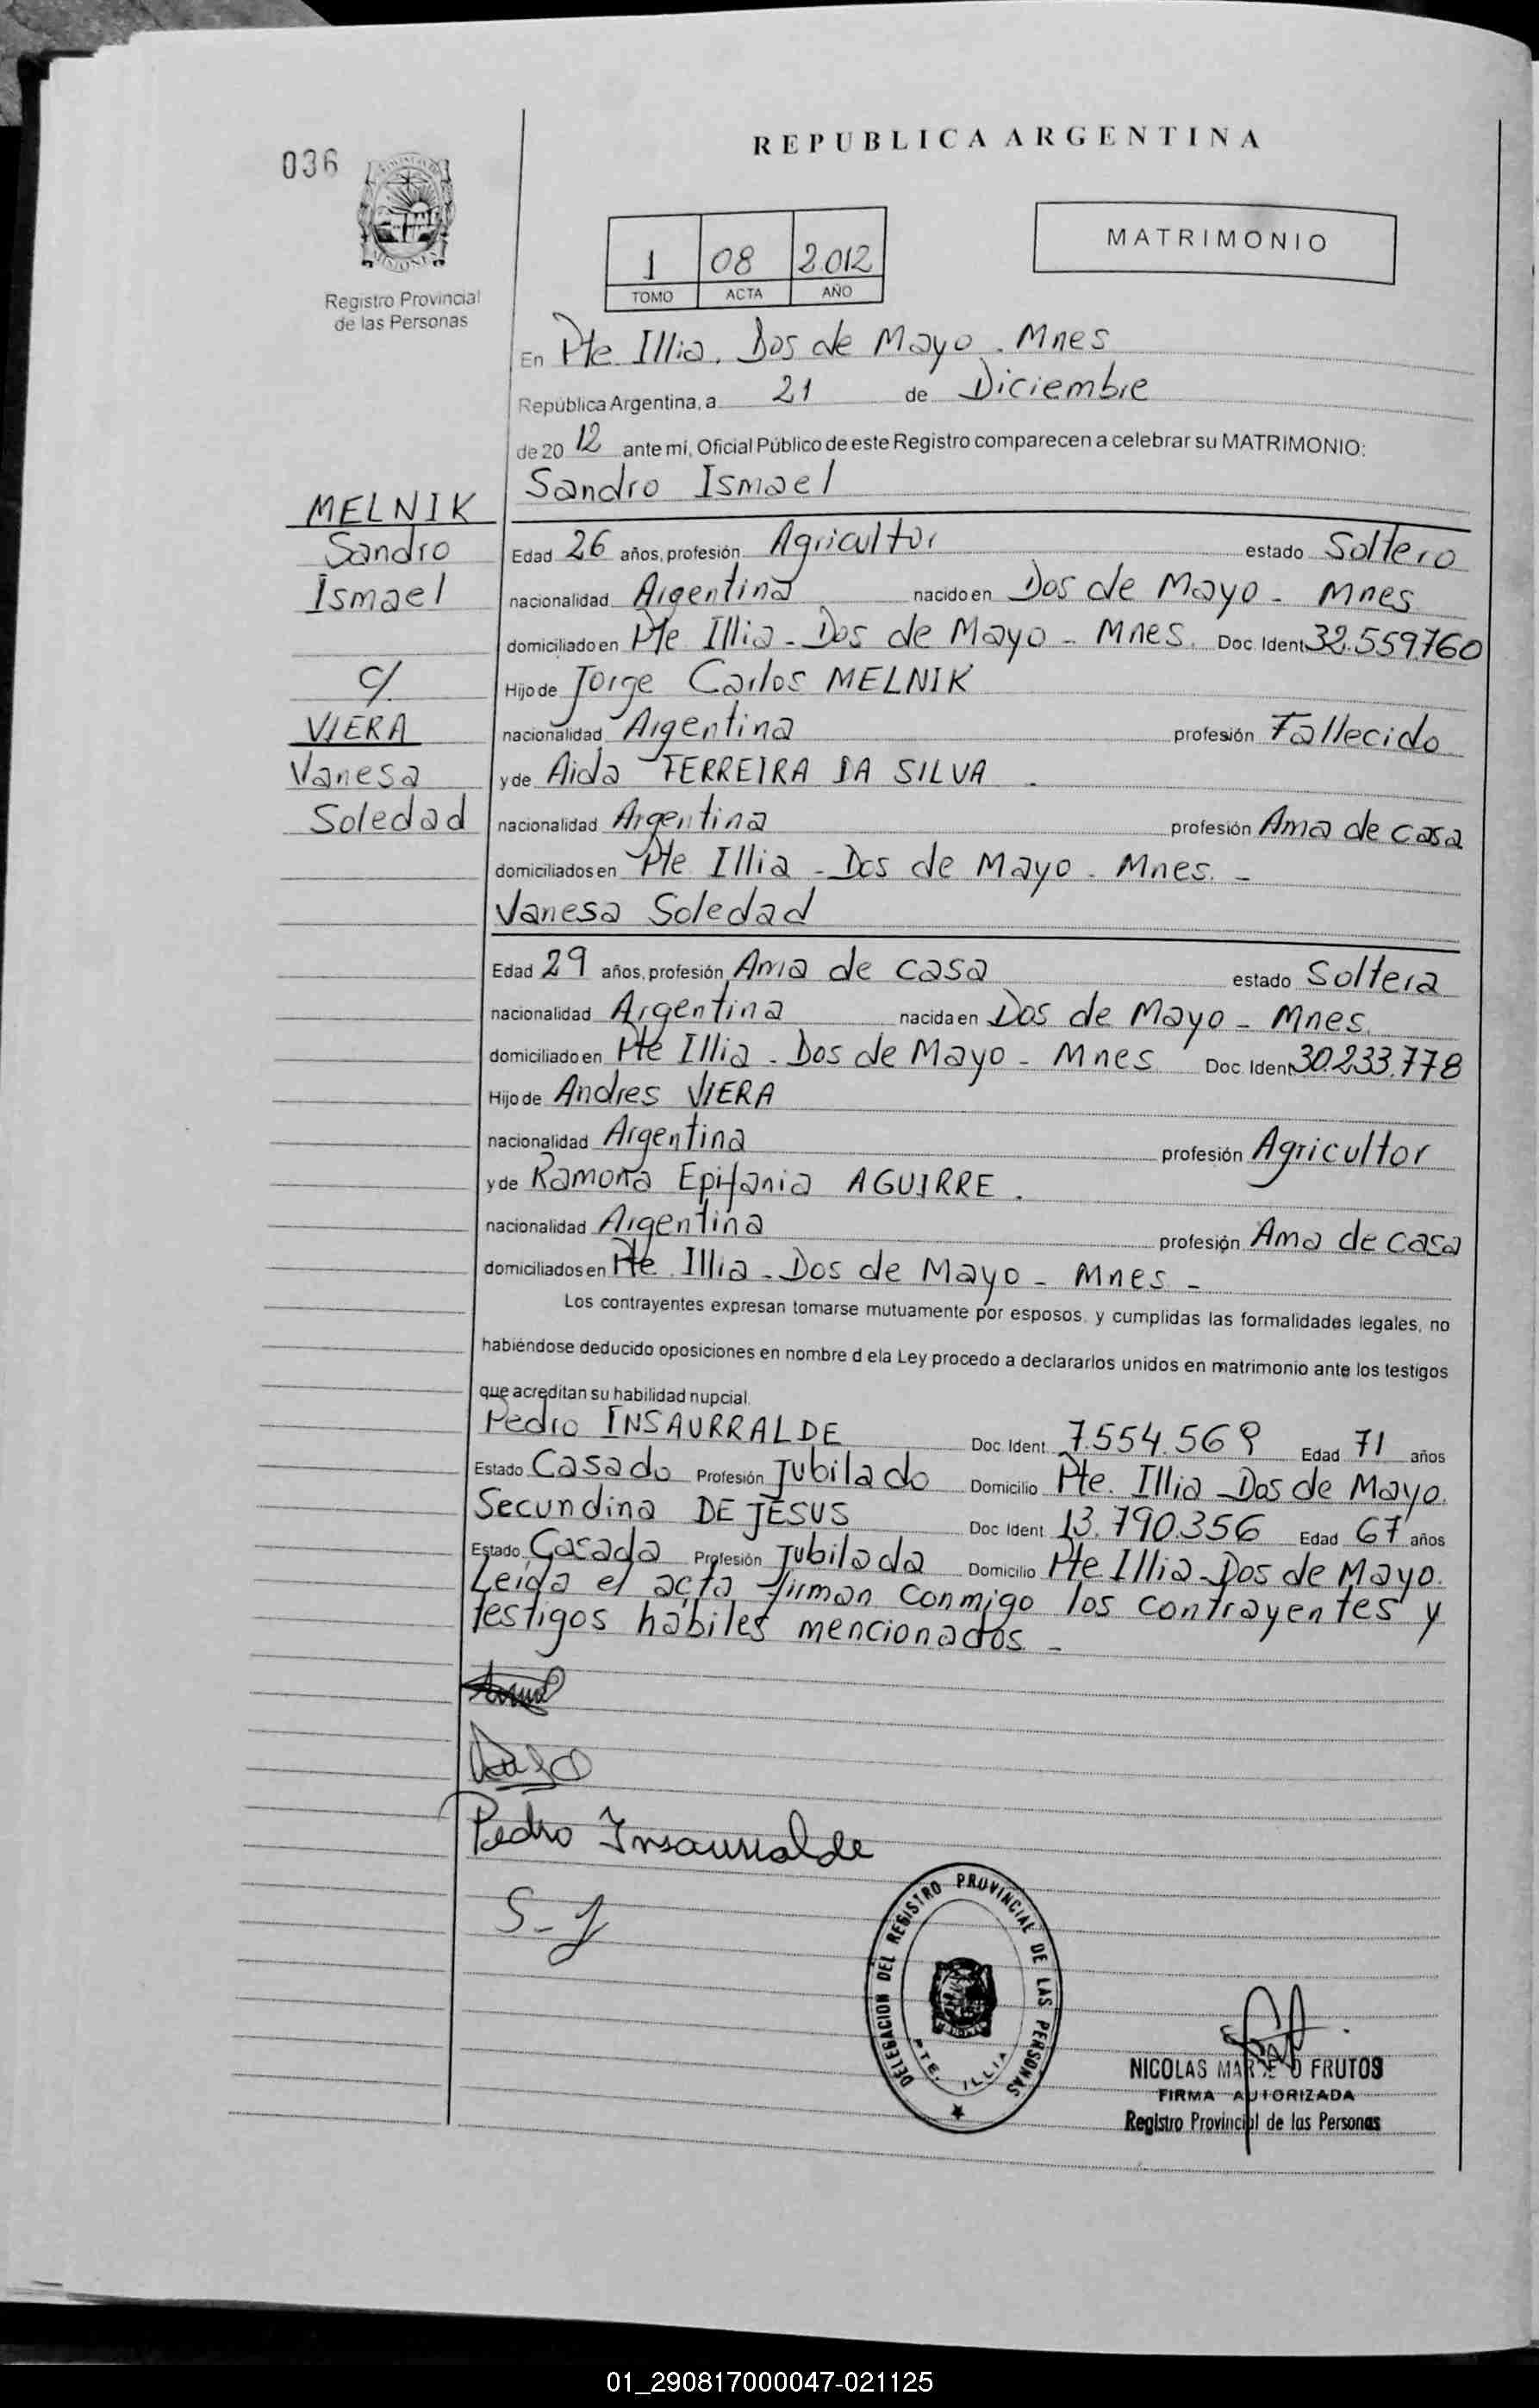 REPUBLICA ARGENTINA
036
MISIONES
Registro Provincial
de las Personas
1 08 2.012
TOMO ACTA AÑO
MATRIMONIO
En Pte. Illia. Dos de Mayo. Mnes
República Argentina, a 21 de Diciembre
de 20 12 ante mí, Oficial Público de este Registro comparecen a celebrar su MATRIMONIO:
MELNIK Sandro Ismael
Sandro Edad 26 años, profesión Agricultor estado Soltero
Ismael nacionalidad Argentina nacido en Dos de Mayo - Mnes
domiciliado en Pte Illia - Dos de Mayo - Mnes. Doc. Ident 32.559.760
c/. Hijo de Jorge Carlos MELNIK
VIERA nacionalidad Argentina profesión Fallecido
Vanesa y de Aida FERREIRA DA SILVA.
Soledad nacionalidad Argentina profesión Ama de casa
domiciliados en Pte Illia - Dos de Mayo - Mnes. -
Vanesa Soledad
Edad 29 años, profesión Ama de casa estado Soltera
nacionalidad Argentina nacida en Dos de Mayo - Mnes.
domiciliado en Pte Illia - Dos de Mayo - Mnes Doc. Ident 30.233.778
Hijo de Andres VIERA
nacionalidad Argentina profesión Agricultor
y de Ramona Epifania AGUIRRE.
nacionalidad Argentina profesión Ama de casa
domiciliados en Pte. Illia - Dos de Mayo - Mnes -
Los contrayentes expresan tomarse mutuamente por esposos, y cumplidas las formalidades legales, no
habiéndose deducido oposiciones en nombre d ela Ley procedo a declararlos unidos en matrimonio ante los testigos
que acreditan su habilidad nupcial.
Pedro INSAURRALDE Doc. Ident. 7.554.569 Edad 71 años
Estado Casado Profesión Jubilado Domicilio Pte. Illia - Dos de Mayo.
Secundina DE JESUS Doc. Ident. 13.790.356 Edad 67 años
Estado Casada Profesión Jubilada Domicilio Pte Illia - Dos de Mayo.
Leída el acta firman conmigo los contrayentes y
testigos hábiles mencionados -
Pedro Insaurralde
S-J
DELEGACION DEL REGISTRO PROVINCIAL DE LAS PERSONAS
PTE. ILLIA
NICOLAS FRUTOS
FIRMA AUTORIZADA
Registro Provincial de las Personas
01_290817000047-021125